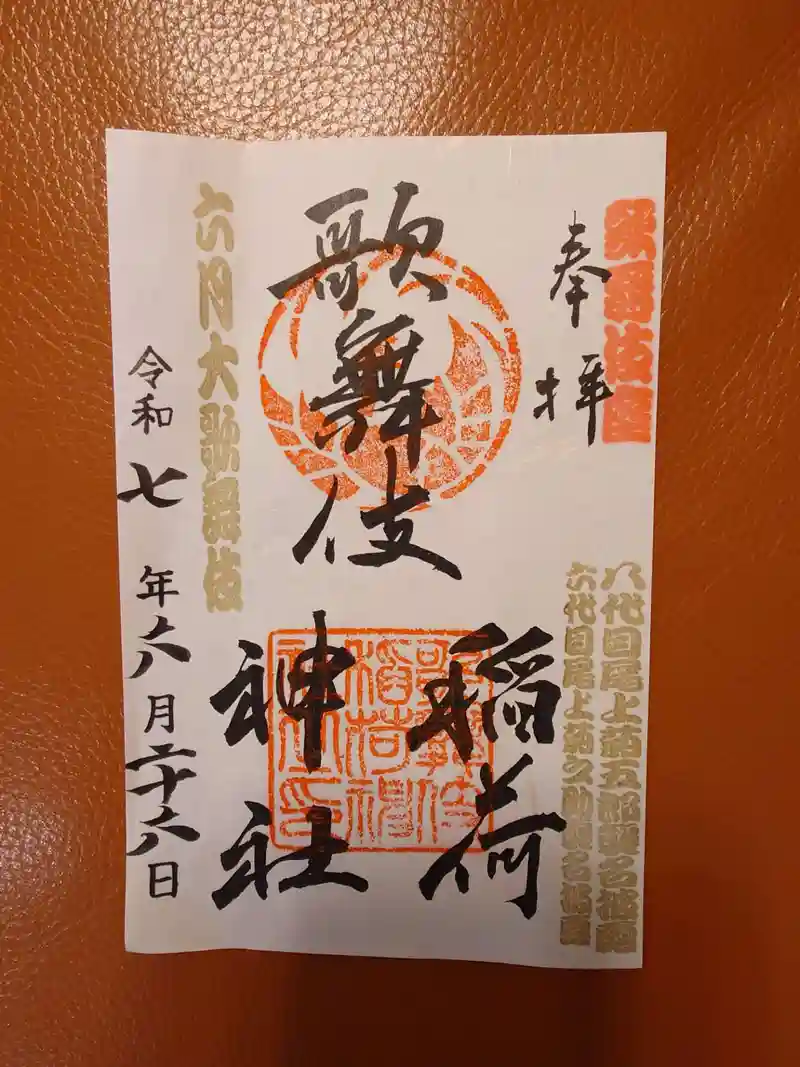 歌舞伎座
奉拝
八代目尾上菊五郎襲名披露
六代目尾上菊之助襲名披露
歌舞伎
稲荷
神社
歌舞伎稲荷神社印
六月大歌舞伎
令和七年六月二十六日